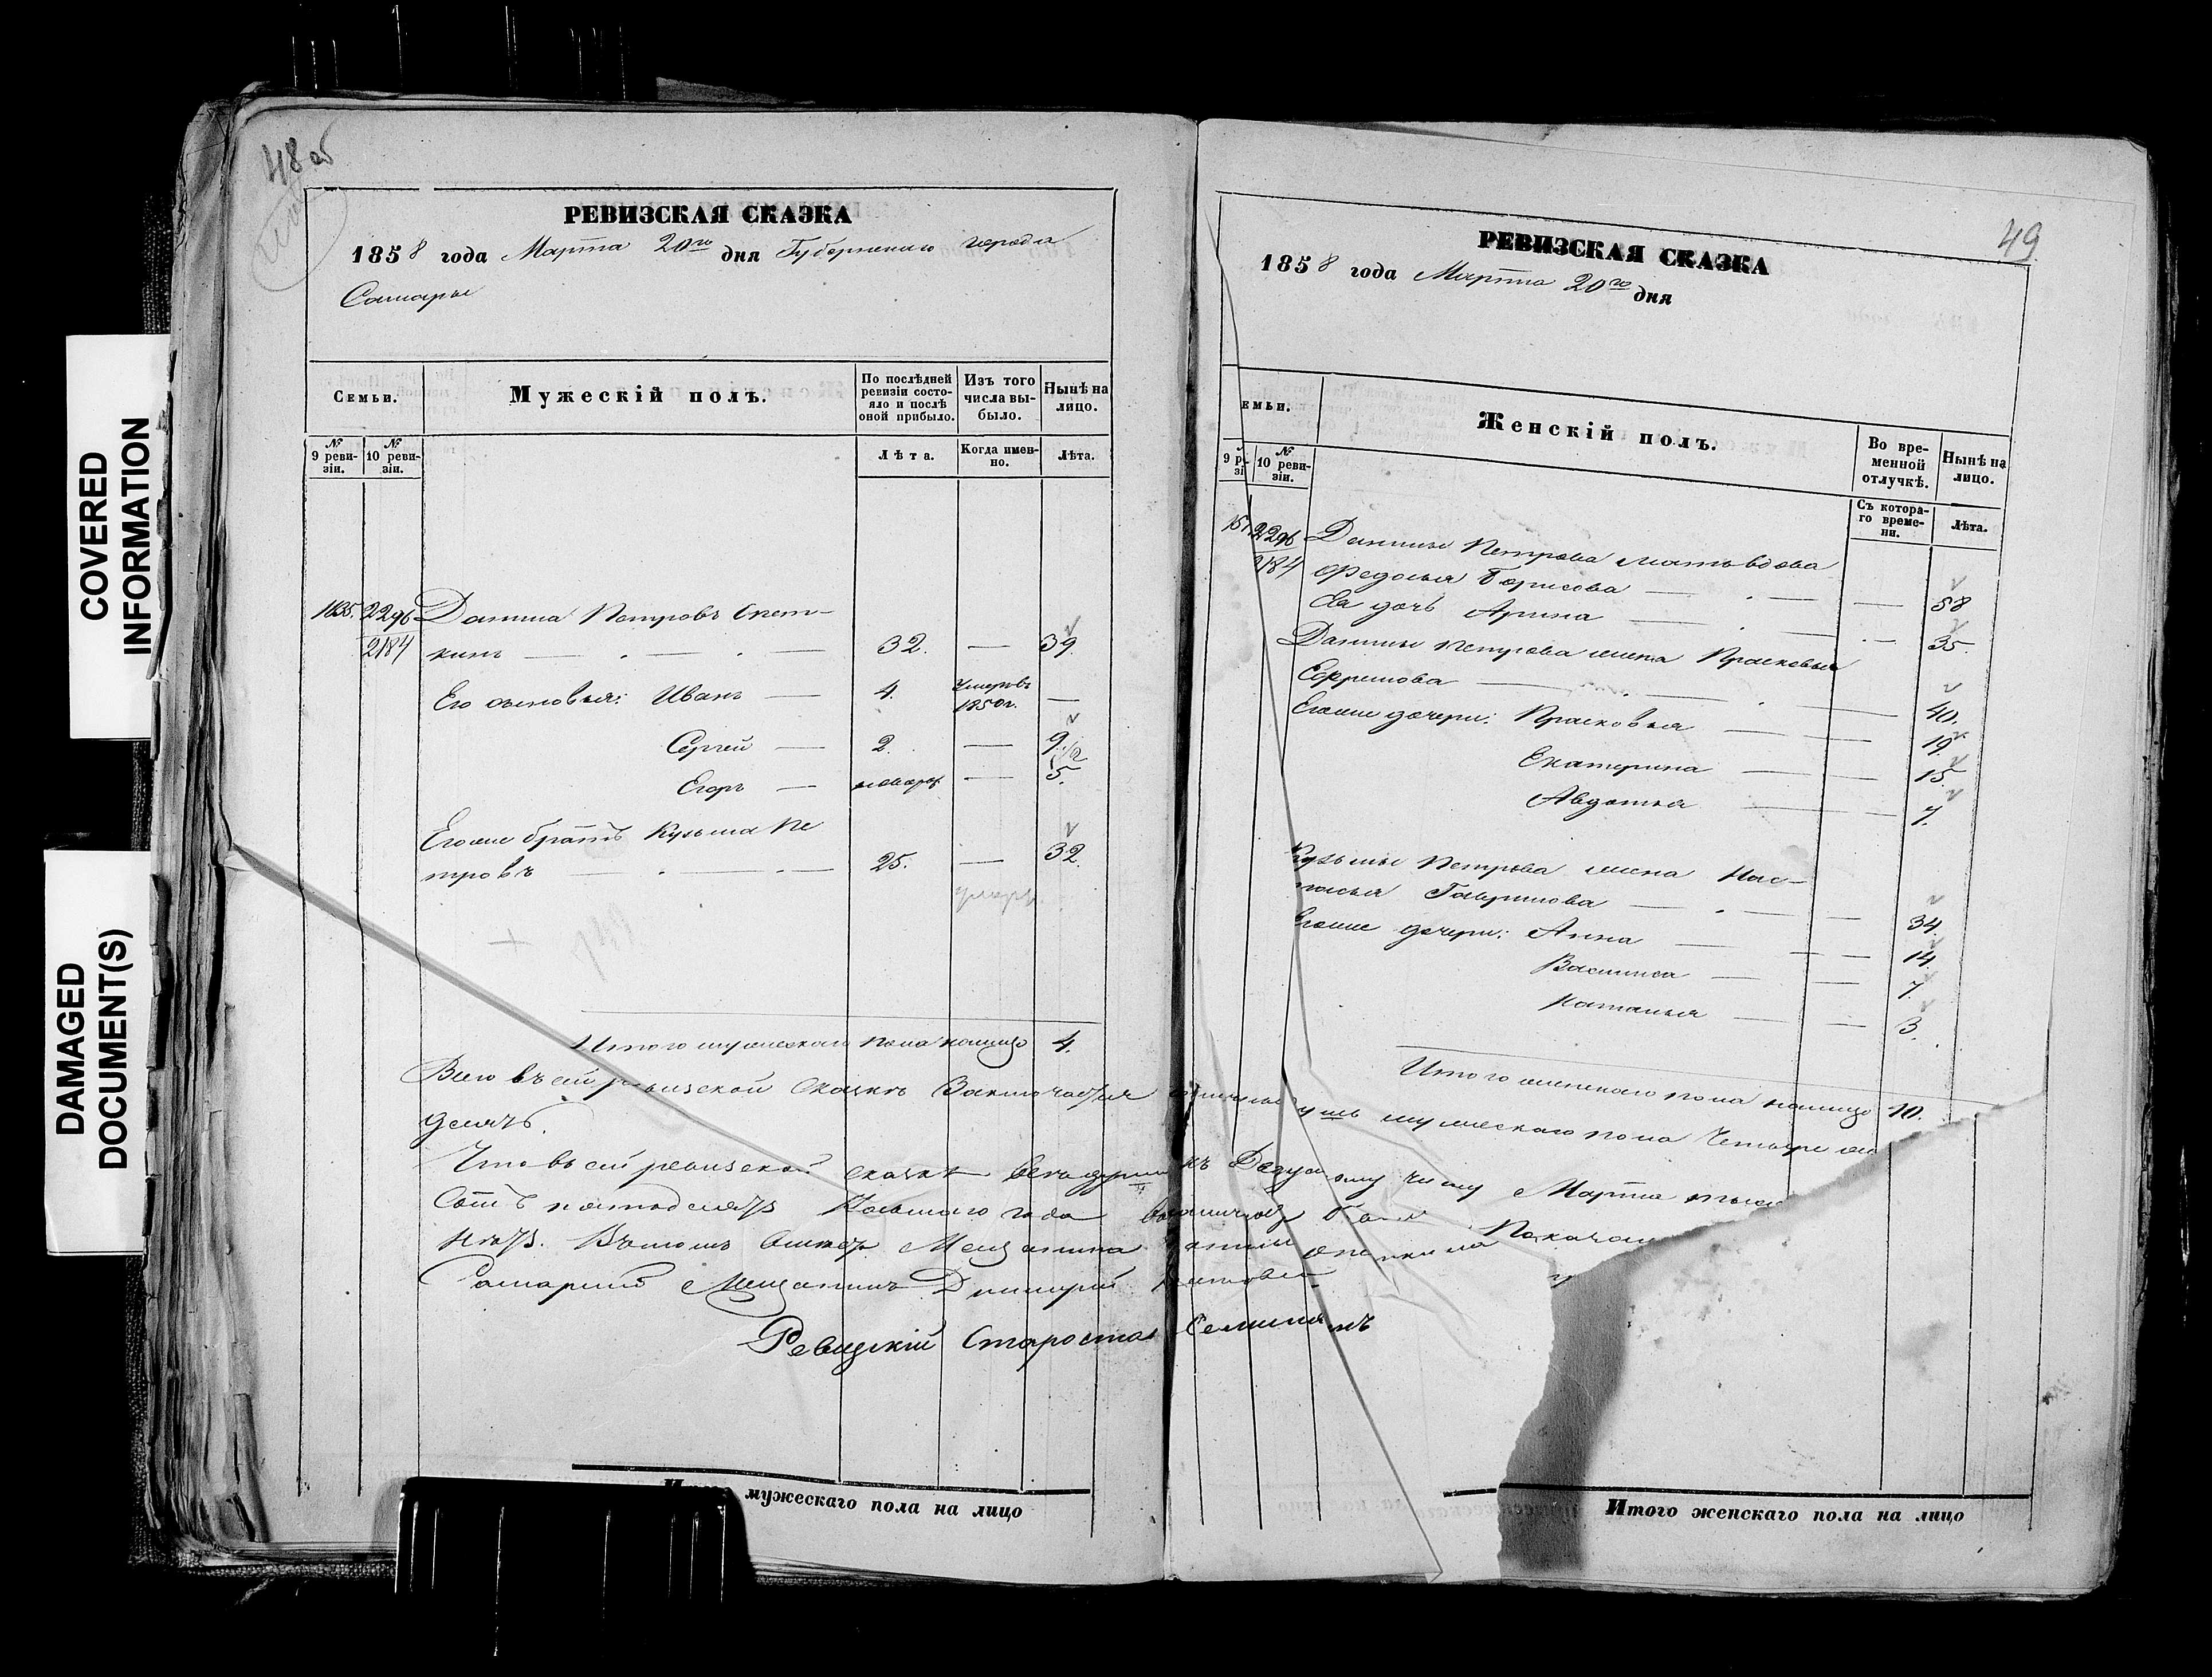 COVERED
INFORMATION
DAMAGED
DOCUMENT(S)
48 об
РЕВИЗСКАЯ СКАЗКА
1858 года Марта 20го дня Губернскаго города
Самары
Семьи.
Мужескій полъ.
По послѣдней ревизіи состояло и послѣ оной прибыло.
Изъ того числа выбыло.
Нынѣ на лицо.
№ 9 ревизіи.
№ 10 ревизіи.
Лѣта.
Когда именно.
Лѣта.
1635. 2296 Данила Петровъ
2184 кинъ — 32. — 39
Его сыновья: Иванъ — 4. Умеръ въ 1850 г. —
Сергей — 2. — 9 1/2
Егоръ — — 5.
Его же братъ Кузьма Пе
тровъ — 25. — 32
Итого мужескаго пола налицо 4.
Всего въ сей ревизской сказкѣ Заключается душъ мужескаго пола Четыре
десять.
Что въ сей ревизской сказкѣ всѣ души къ числу Марта
Сотъ пятьдесятъ Восьмаго года
нѣтъ. Въ томъ Мещанина
Самарскій Мещанинъ Дмитрій
Ревизскій Староста
Итого мужескаго пола на лицо
49
РЕВИЗСКАЯ СКАЗКА
1858 года Марта 20го дня
Семьи.
Женскій полъ.
Во временной отлучкѣ.
Нынѣ на лицо.
№ 9 ревизіи.
№ 10 ревизіи.
Съ котораго времени.
Лѣта.
2296 Данилы Петрова мать вдова
2184 Федосья Борисова — 58
Ея дочь Арина — 35.
Данилы Петрова жена Прасковья
Ефремова — 40.
Его же дочери: Прасковья — 19
Екатерина — 15
Авдотья — 7.
Кузьмы Петрова жена Нас-
тасья Гаврилова — 34
Его же дочери: Анна — 14
Василиса — 7.
Наталья — 3.
Итого женскаго пола налицо 10.
Итого женскаго пола на лицо